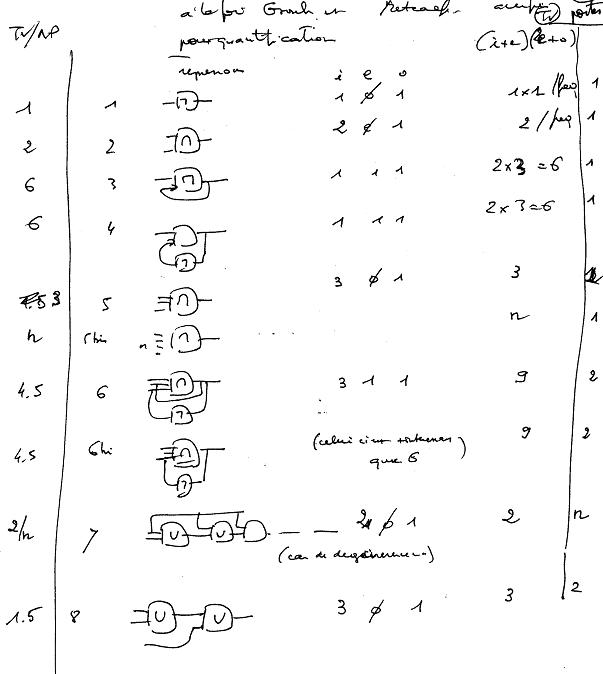 à la foi
TV/NP pour quantification (i+e)(e+o) TV portes
reprenons i e o
1 1 1 ∅ 1 1×1 /feq 1
2 2 2 ∅ 1 2 /feq 1
6 3 1 1 1 2×3=6 1
6 4 1 1 1 2×3=6 1
3 5 3 ∅ 1 3
n 5bis n ... n 1
4.5 6 3 1 1 9 2
4.5 6bis (celui ci 9 2
que 6)
2/n 7 2 ∅ 1 2 n
(cas de dégénérescence)
1.5 8 3 ∅ 1 3 2